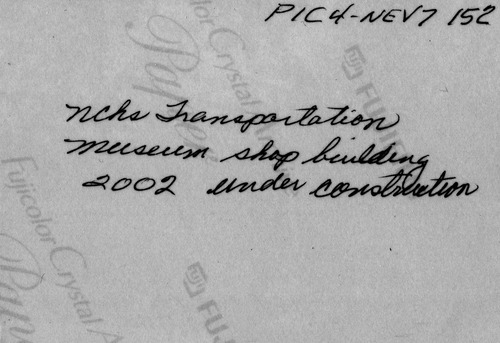 PIC4-NEV7 152
Fujicolor Crystal A
Paper
FUJI FUJI
NCHS Transportation
Museum shop building
2002 under construction
Fujicolor Crystal A
Pape
FUJI FUJI